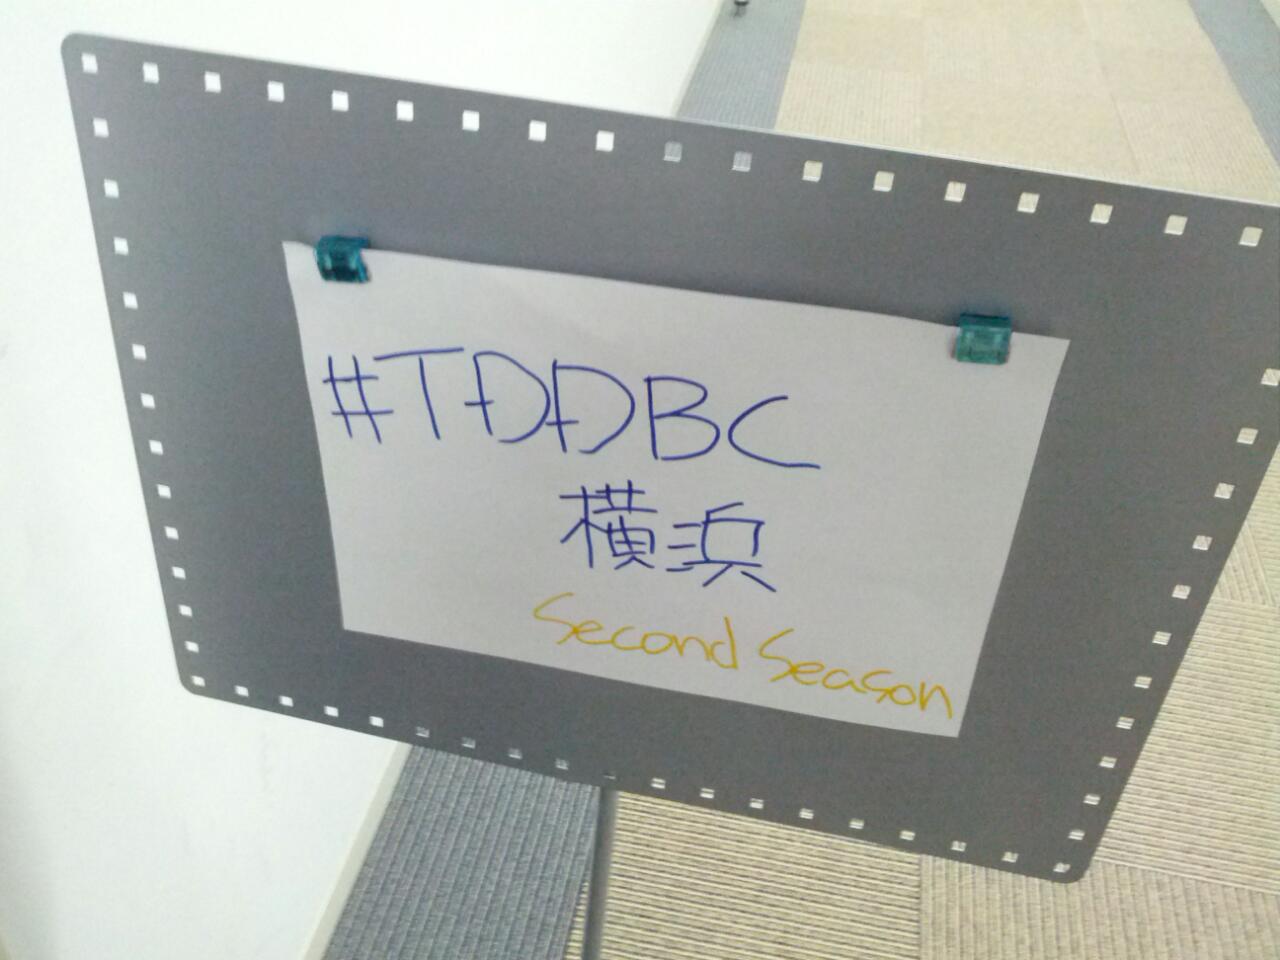 #TDDBC
横浜
Second Season